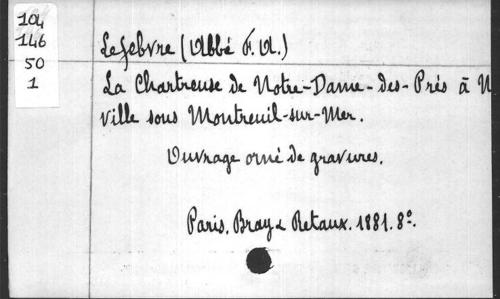 104
146
50
1
Lefebvre (Abbé F. A.)
La Chartreuse de Notre-Dame-des-Prés à N
ville sous Montreuil-sur-Mer.
Ouvrage orné de gravures.
Paris. Bray & Retaux. 1881. 8º.